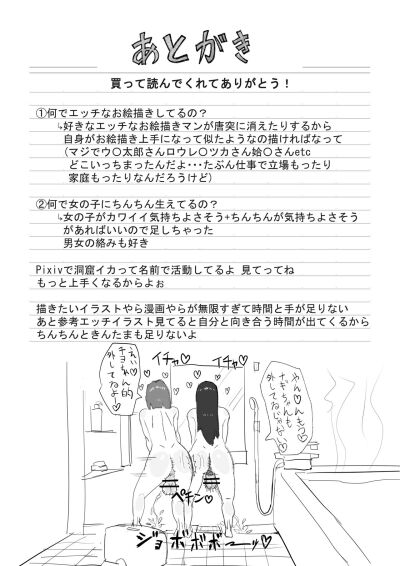 あとがき
買って読んでくれてありがとう！
①何でエッチなお絵描きしてるの？
↳好きなエッチなお絵描きマンが唐突に消えたりするから
自身がお絵描き上手になって似たようなの描ければなって
(マジでウ〇太郎さんロウレ〇ツカさん姶〇さんetc
どこいっちまったんだよ･･･たぶん仕事で立場もったり
家庭もったりなんだろうけど)
②何で女の子にちんちん生えてるの？
↳女の子がカワイイ気持ちよさそう+ちんちんが気持ちよさそう
があればいいので足しちゃった
男女の絡みも好き
Pixivで洞窟イカって名前で活動してるよ 見てってね
もっと上手くなるからよぉ
描きたいイラストやら漫画やらが無限すぎて時間と手が足りない
あと参考エッチイラスト見てると自分と向き合う時間が出てくるから
ちんちんときんたまも足りないよ
イチャ♡
イチャ♡
やん♡んもう
ナギちゃんも
外してるじゃない♡
チヨちゃん的
外してるよ♡
ペチン♡
ジョボボボーーッ♡